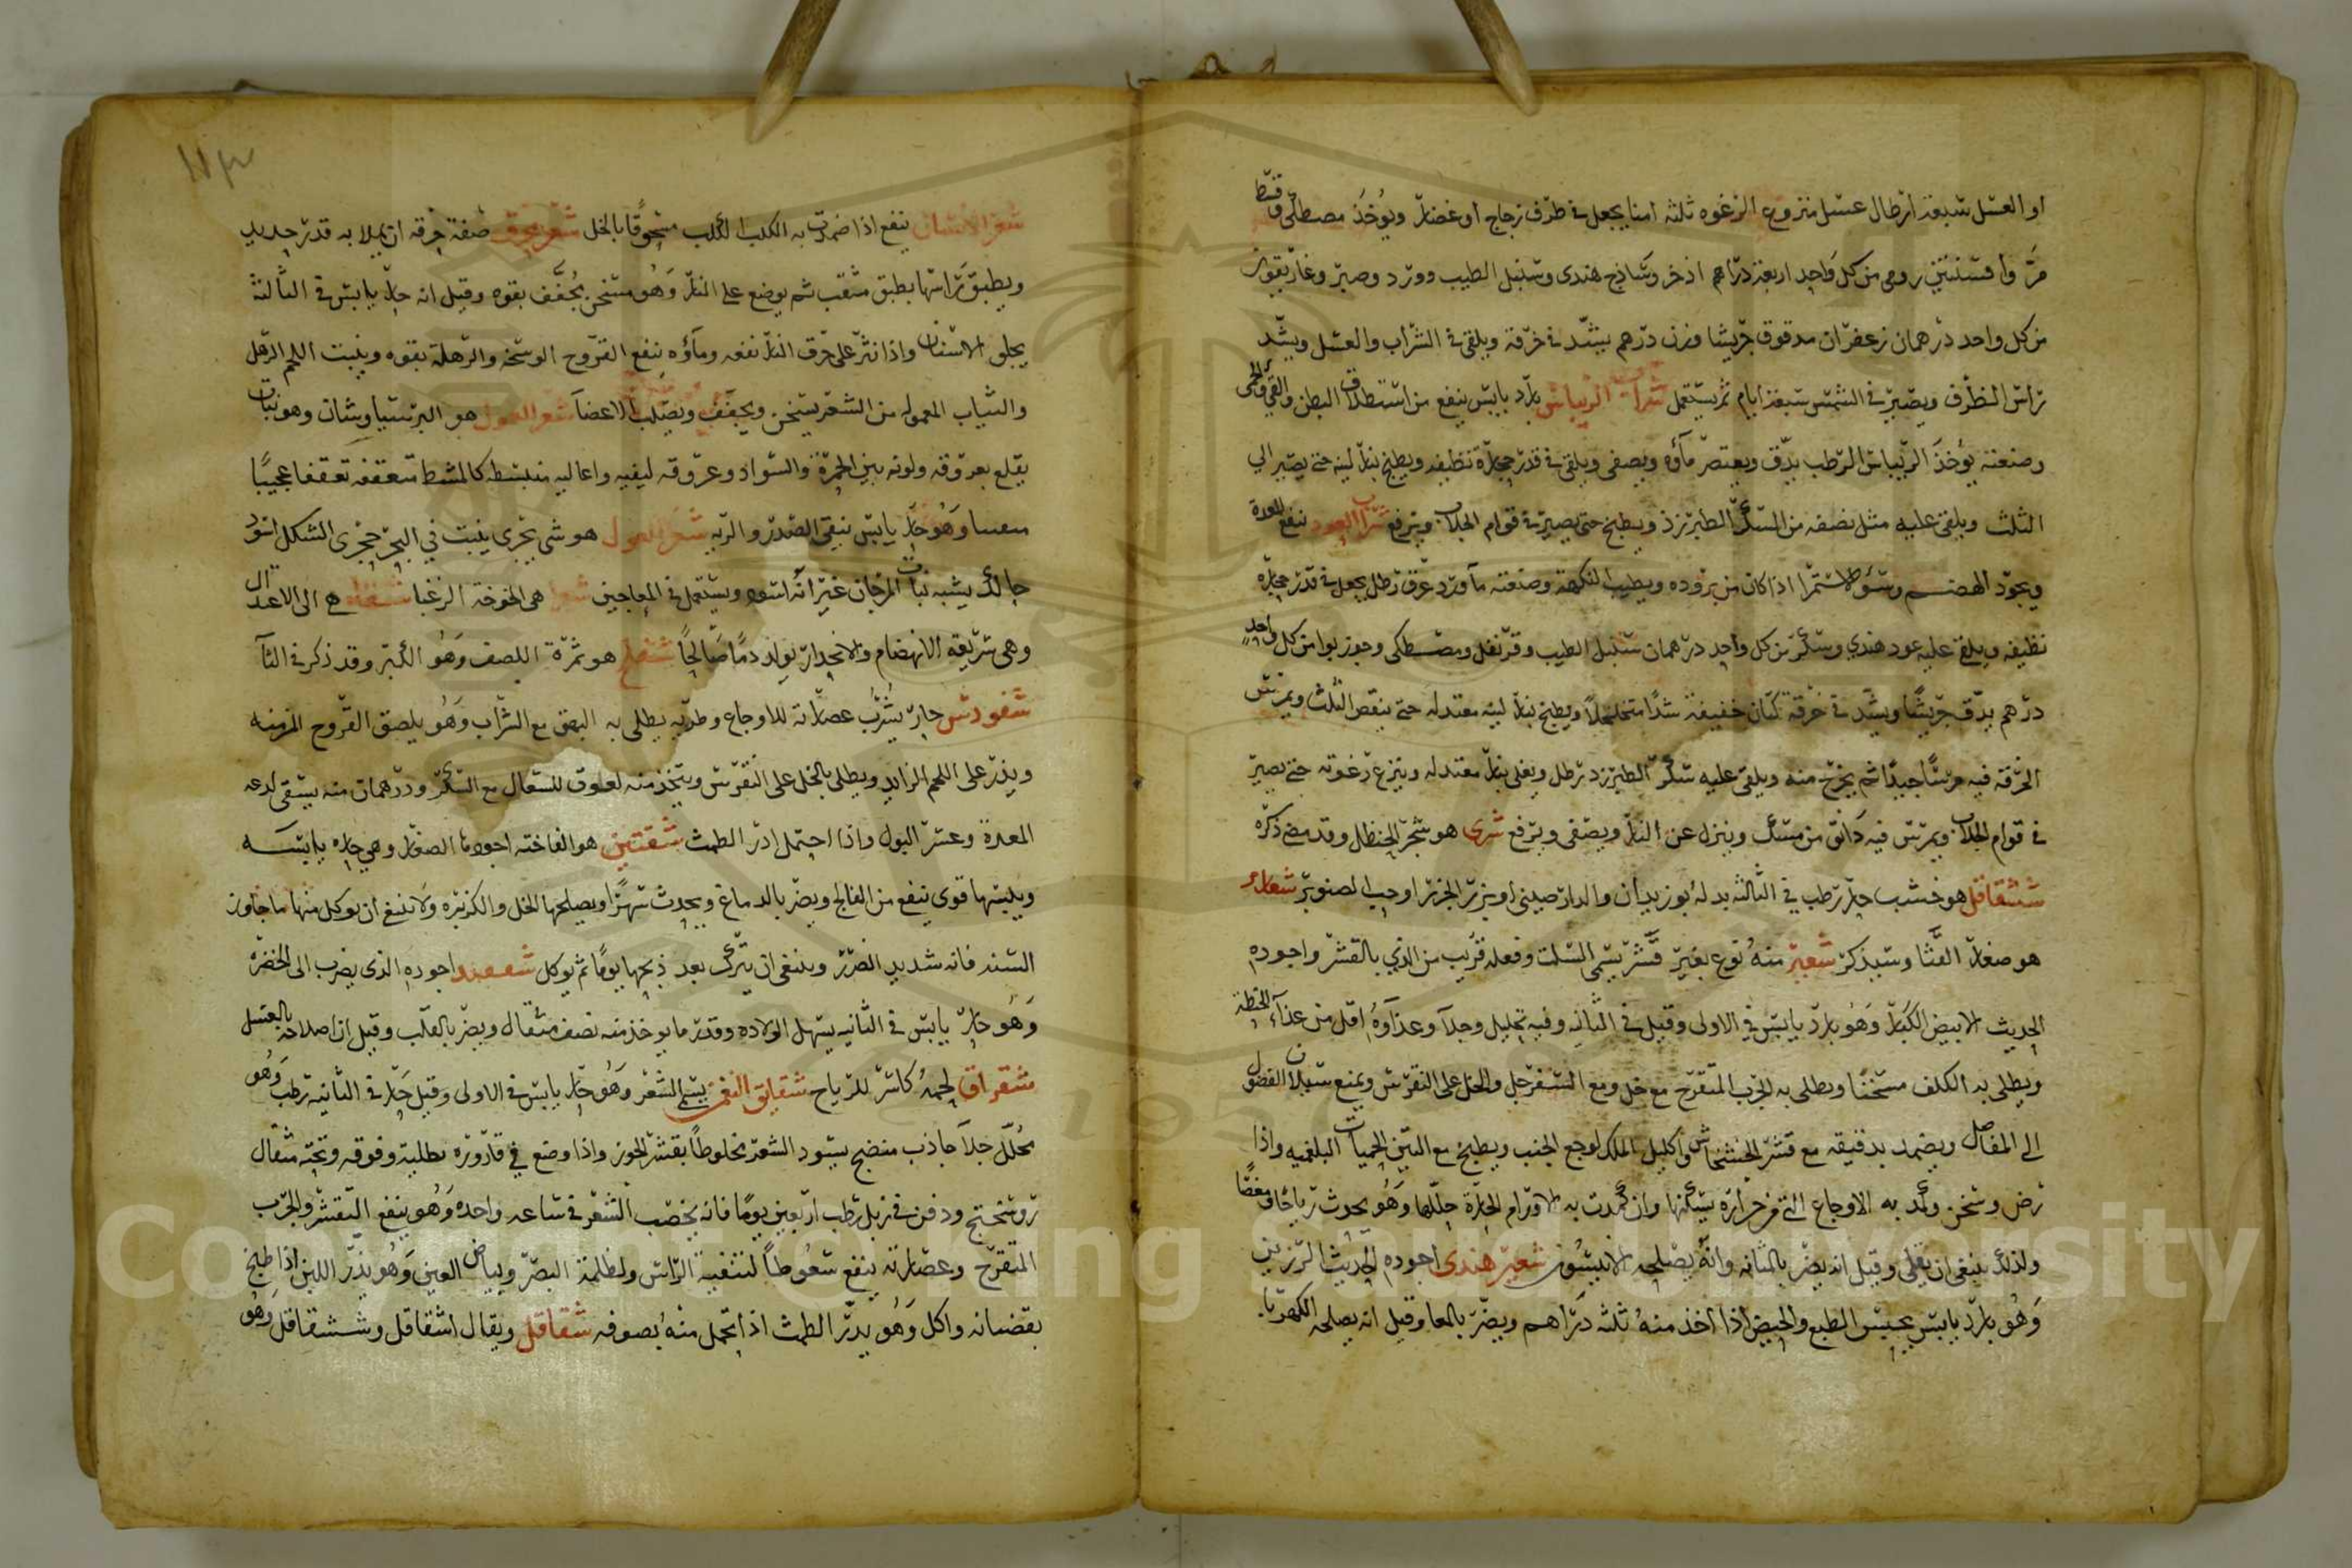 او العسل سبعة ارطال عسل منزوع الرغوه ثلثه امنا يجعل في ظرف زجاج او غضار ويوخذ مصطكى وقسط
مر وافسنتين رومى من كل واحد اربعة دراهم اذخر وساذج هندى وسنبل الطيب وورد وصبر وغاريقون
من كل واحد درهمان زعفران مدقوق جريشا وزن درهم يشد في خرقه ويلقى في الشراب والعسل ويشد
راس الظرف ويصير في الشمس سبعة ايام ثم يستعمل شراب الريباس بارد يابس ينفع من استطلاق البطن والقي والحمى
وصنعته يوخذ الريباس الرطب يدق ويعتصر ماؤه ويصفى ويلقى في قدر حجارة نظيفه ويطبخ بنار لينه حتى يصير الى
الثلث ويلقى عليه مثل نصفه من السكر الطبرزذ ويطبخ حتى يصير في قوام الجلاب ويرفع شراب العود ينفع المعدة
ويجود الهضم وسؤ الاستمرا اذا كان من بروده ويطيب النكهة وصنعته ماورد عرق رطل يجعل في قدر حجارة
نظيفه ويلقى عليه عود هندي وسكر من كل واحد درهمان سنبل الطيب وقرنفل ومصطكى وجوزبوا من كل واحد
درهم يدق جريشا ويشد في خرقة كتان خفيفة شدا متخلخلا ويطبخ بنار لينه معتدله حتى ينقص الثلث ويمرس
الخرقة فيه مرسا جيدا ثم يخرج منه ويلقى عليه سكر الطبرزد رطل ويغلى بنار معتدله وينزع رغوته حتى يصير
في قوام الجلاب ويمرس فيه دانق من مسك وينزل عن النار ويصفى ويرفع شرى هو شجر الحنظل وقد مضى ذكره
ششقاقل هو خشب حار رطب في الثالثه بدله بوزيدان والدارصينى او بزر الجزر او حب الصنوبر شعارير
هو صغار القثا وسيذكر شعير منه نوع بغير قشر يسمى السلت وفعله قريب من الذي بالقشر واجوده
الحديث الابيض الكبار وهو بارد يابس في الاولى وقيل في الثانيه وفيه تحليل وجلا وغذاوه اقل من غذاء الحنطة
ويطلى به الكلف مسخنا ويطلى به الجرب المتقرح مع خل ومع السفرجل والخل على النقرس ويمنع سيلان الفضول
الى المفاصل ويضمد بدقيقه مع قشر الخشخاش واكليل الملك لوجع الجنب ويطبخ مع التين لحميات البلغميه واذا
رض وسخن وكمد به الاوجاع التي من حرارة يسكنها وان ضمدت به الاورام الحارة حللها وهو يحدث رياحا ومغصا
ولذلك ينبغى ان يقلى وقيل انه يضر بالمثانه وانه يصلحه الانيسون شعير هندى اجوده الحديث الرزين
وهو بارد يابس يحبس الطبع والحيض اذا اخذ منه ثلثه دراهم ويضر بالمعا وقيل انه يصلحه الكهربا
١١٣
شعر الانسان ينفع اذا ضمدت به الكلب الكلب مسحوقا بالخل شعر محرق صفة حرقه ان يملا به قدر جديد
ويطبق راسها بطبق مثقب ثم يوضع على النار وهو مسخن مجفف بقوه وقيل انه حار يابس في الثالثة
يجلى الاسنان واذا نثر على حرق النار نفعه وماؤه ينفع القروح الوسخه والرهلة بقوه وينبت اللحم الرهل
والثياب المعموله من الشعر يسخن ويجفف ويصلب الاعضا شعر الغول هو البرسياوشان وهو نبات
يقلع بعروقه ولونه بين الحمرة والسواد وعروقه ليفيه واعاليه منبسطه كالمشط متعقفه تعقفا عجيبا
وهو حار يابس ينقى الصدر والريه شعر الغول هو شي بحري ينبت في البحر حجري الشكل اسود
حالك يشبه نبات المرجان غير انه اسود ويستعمل في المعاجين شعرا هي الخوخة الزغبا هى الى الاعتدال
وهى سريعه الانهضام والانحدار يولد دما صالحا شفلح هو ثمرة اللصف وهو الكبر وقد ذكر في الثا
شفودس حار يشرب عصارته للاوجاع وطريه يطلى به البهق مع الشراب وهو يلصق القروح المزمنه
ويذر على اللحم الزايد ويطلى بالخل على النقرس ويتخذ منه لعوق للسعال مع السكر ودرهمان منه يسقى لدغه
المعدة وعسر البول واذا احتمل ادر الطمث شفنين هو الفاخته اجودها الصغار وهي حاره يابسه
ويبسها قوى ينفع من الفالج ويضر بالدماغ ويحدث سهرا ويصلحها الخل والكزبره ولا ينبغي ان يوكل منها ما جاوز
السنة فانه شديد الضرر وينبغى ان يترك بعد ذبحها يوما ثم يوكل اجوده الذى يضرب الى الخضره
وهو حار يابس في الثانيه يسهل الولاده وقدر ما يوخذ منه نصف مثقال ويضر بالقلب وقيل ان اصلاحه بالعسل
شقراق لحمه كاسر للرياح شقايق النعمن يسمى الشقر وهو حار يابس في الاولى وقيل حار في الثانيه رطب وهو
محلل جلا جاذب منضج يسود الشعر مخلوطا بقشر الجوز واذا وضع في قارورة بطليه وفوقه وتحته مثقال
روسختج ودفن في زبل رطب اربعين يوما فانه يخضب الشعر في ساعه واحده وهو ينفع التقشر والجرب
المتقرح وعصارته ينفع سعوطا لتنقية الراس ولظلمة البصر ولبياض العين وهو يدر اللبن اذا طبخ
بقضبانه واكل وهو يدر الطمث اذا تحمل منه بصوفه شقاقل ويقال اشقاقل وششقاقل وهو